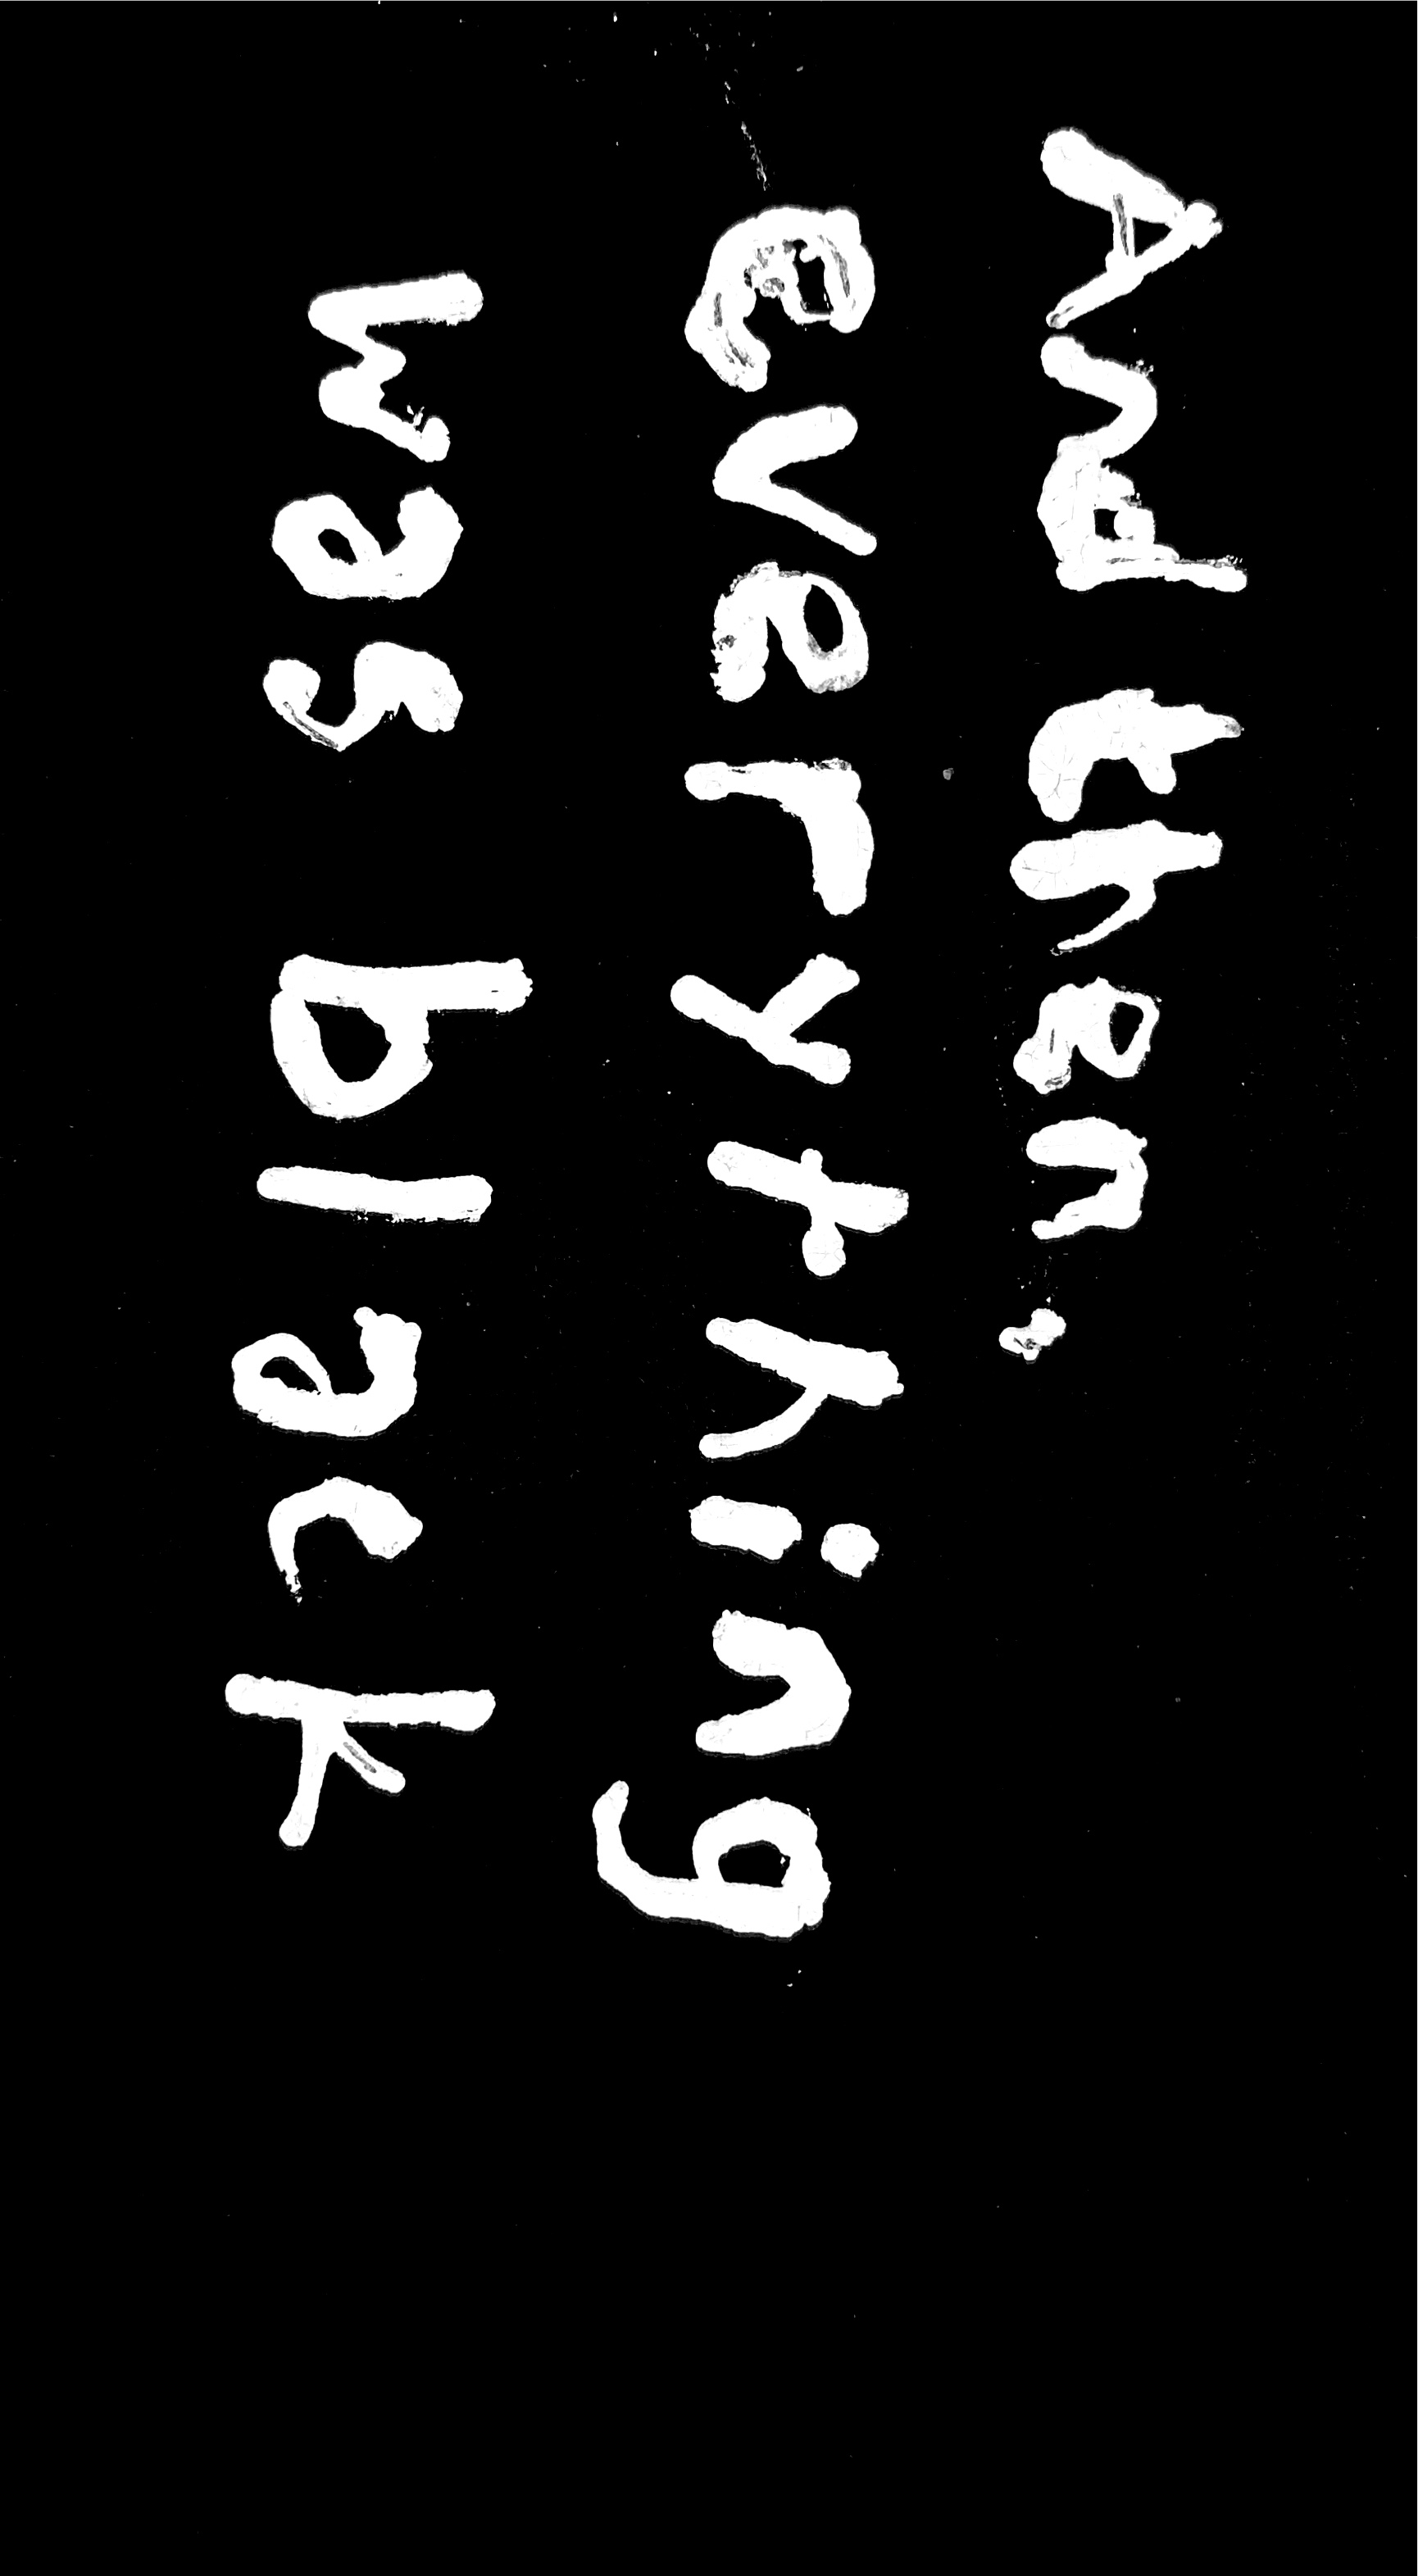 And then,
everything
was black